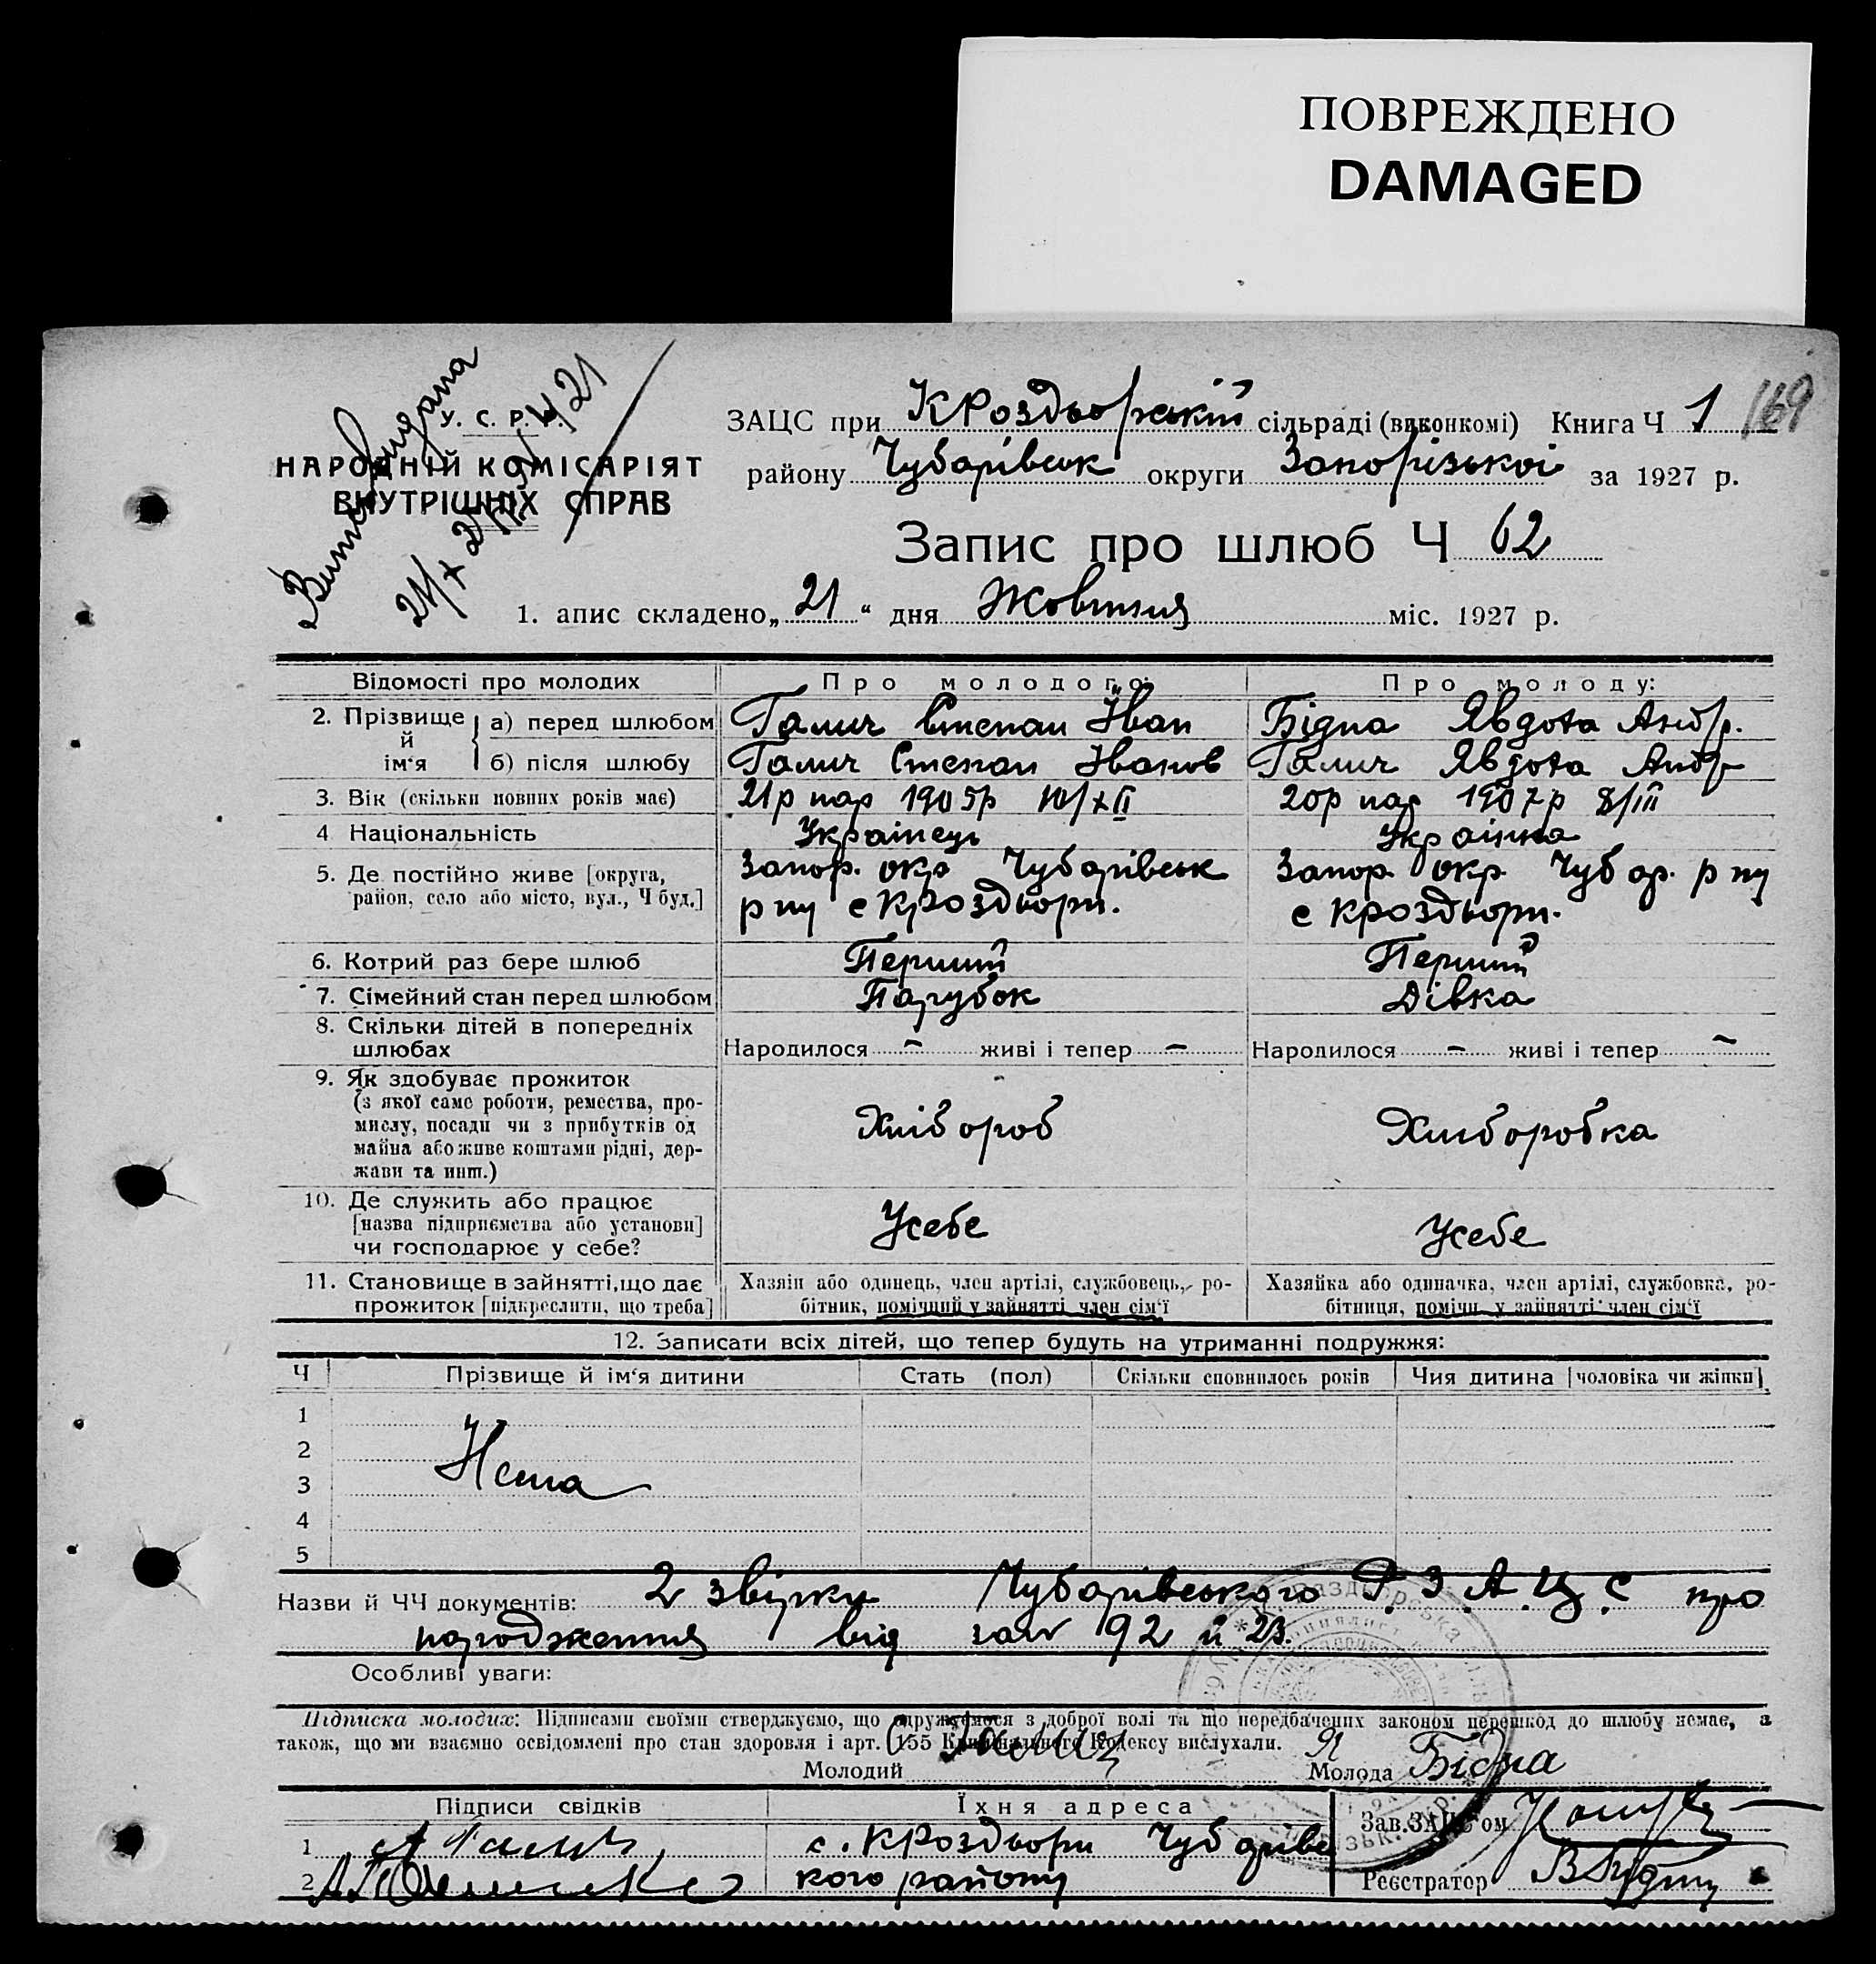 ПОВРЕЖДЕНО
DAMAGED
У. С. Р. Р.
НАРОДНІЙ КОМІСАРІЯТ
ВНУТРІШНІХ СПРАВ
ЗАЦС при КРоздьорській сільраді (виконкомі) Книга Ч 1 169
району Чубарівськ округи Запорізької за 1927 р.
Запис про шлюб Ч 62
1. апис складено „ 21 “ дня Жовтня міс. 1927 р.
Відомості про молодих Про молодого: Про молоду:
2. Прізвище й ім‘я а) перед шлюбом Галич Степан Іван Бідна Явдоха Андр.
б) після шлюбу Галич Степан Іванов Галич Явдоха Андр
3. Вік (скільки повних років має) 21р нар 1905р 10/XII 20р нар 1907р 8/III
4 Національність Українець Українка
5. Де постійно живе [округа, район, село або місто, вул., Ч буд.] Запор. окр Чубарівськ Запор окр. Чубар. р ну
р ну с КРоздьори. с Кроздьори.
6. Котрий раз бере шлюб Перший Перший
7. Сімейний стан перед шлюбом Парубок Дівка
8. Скільки дітей в попередніх
шлюбах Народилося – живі і тепер – Народилося – живі і тепер –
9. Як здобуває прожиток
(з якої саме роботи, ремества, про-
мислу, посади чи з прибутків од Хлібороб Хліборобка
майна або живе коштами рідні, дер-
жави та инш.)
10. Де служить або працює
[назва підприємства або установи] Усебе Усебе
чи господарює у себе?
11. Становище в зайнятті,що дає Хазяїн або одинець, член артілі, службовець, ро- Хазяйка або одиначка, член артілі, службовка, ро-
прожиток [підкреслити, що треба] бітник, помічний у зайнятті член сім‘ї бітниця, помічн. у зайнятті член сім‘ї
12. Записати всіх дітей, що тепер будуть на утриманні подружжя:
Ч Прізвище й ім‘я дитини Стать (пол) Скільки сповнилось років Чия дитина [чоловіка чи жінки]
1
2
3 Нема
4
5
Назви й ЧЧ документів: 2 звірки Чубарівського Р.З.А.Ц.С про
народження від 192 й 23.
Особливі уваги:
Підписка молодих: Підписами своїми стверджуємо, що одружуємося з доброї волі та що передбачених законом перешкод до шлюбу немає, а
також, що ми взаємно освідомлені про стан здоровля і арт. 155 Кримінального Кодексу вислухали.
Молодий С Галич Молода Я Бідна
Підписи свідків Їхня адреса Зав.ЗАЦС‘ом
1 Галич с. КРоздьори Чубарівс
2 кого району Реєстратор